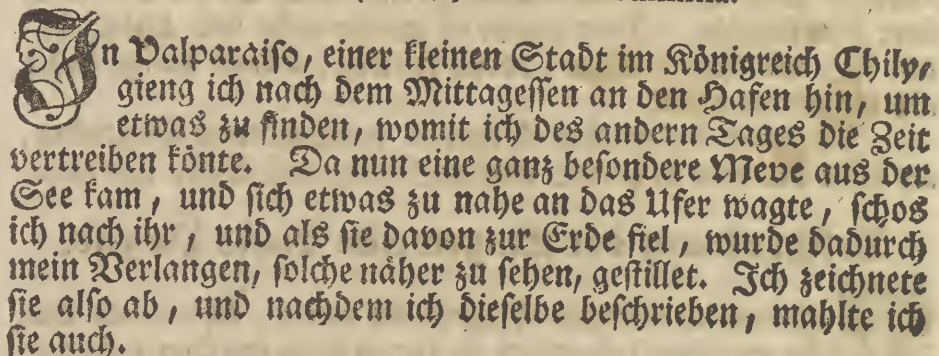 In Valparaiso, einer kleinen Stadt im Königreich Chily,
gieng ich nach dem Mittagessen an den Hafen hin, um
etwas zu finden, womit ich des andern Tages die Zeit
vertreiben könte. Da nun eine ganz besondere Meve aus der
See kam, und sich etwas zu nahe an das Ufer wagte, schos
ich nach ihr, und als sie davon zur Erde fiel, wurde dadurch
mein Verlangen, solche näher zu sehen, gestillet. Ich zeichnete
sie also ab, und nachdem ich dieselbe beschrieben, mahlte ich
sie auch.